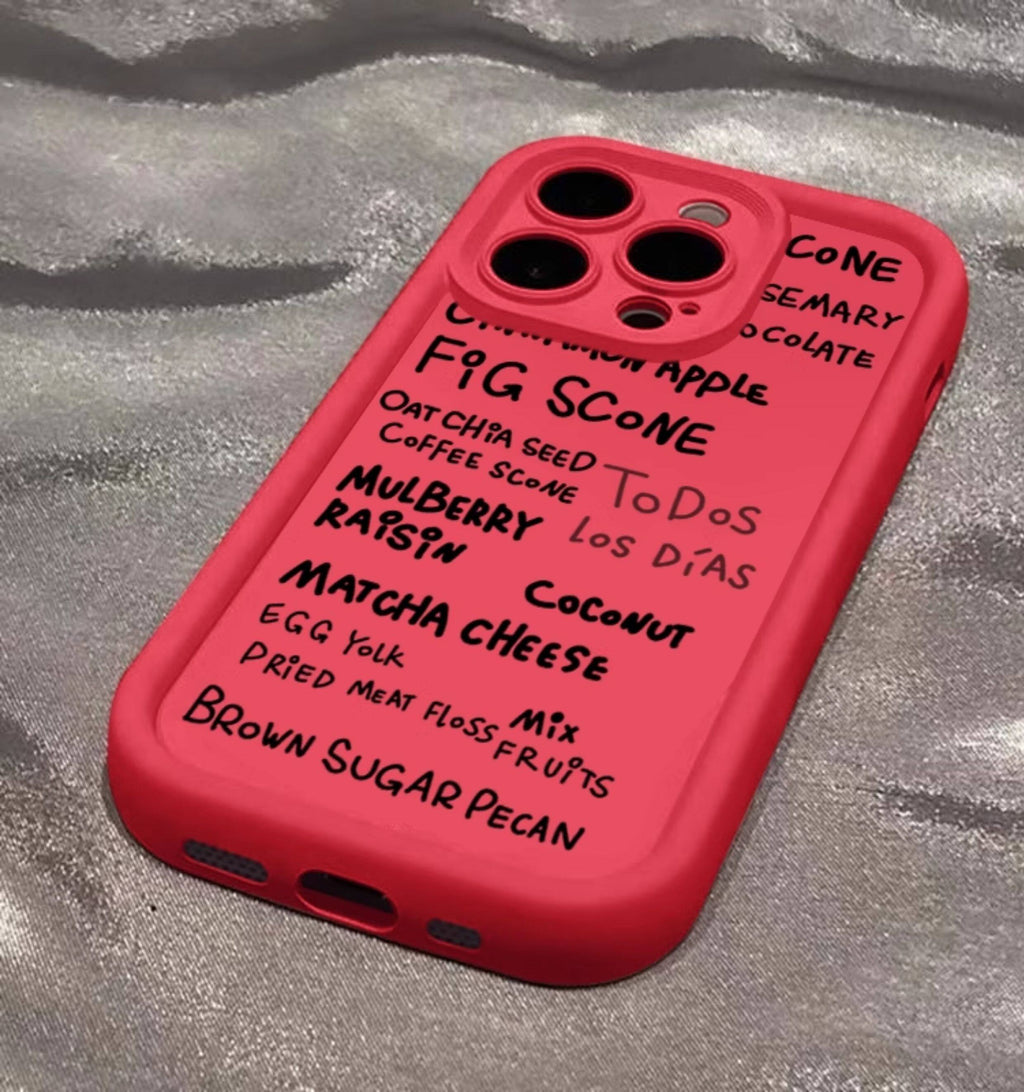 CONE
SEMARY
OCOLATE
CINNAMON APPLE
FIG SCONE
OAT CHIA SEED
COFFEE SCONE
TODOS
LOS DÍAS
MULBERRY
RAISIN
COCONUT
MATCHA CHEESE
EGG YOLK
DRIED MEAT FLOSS
MIX
FRUITS
BROWN SUGAR PECAN